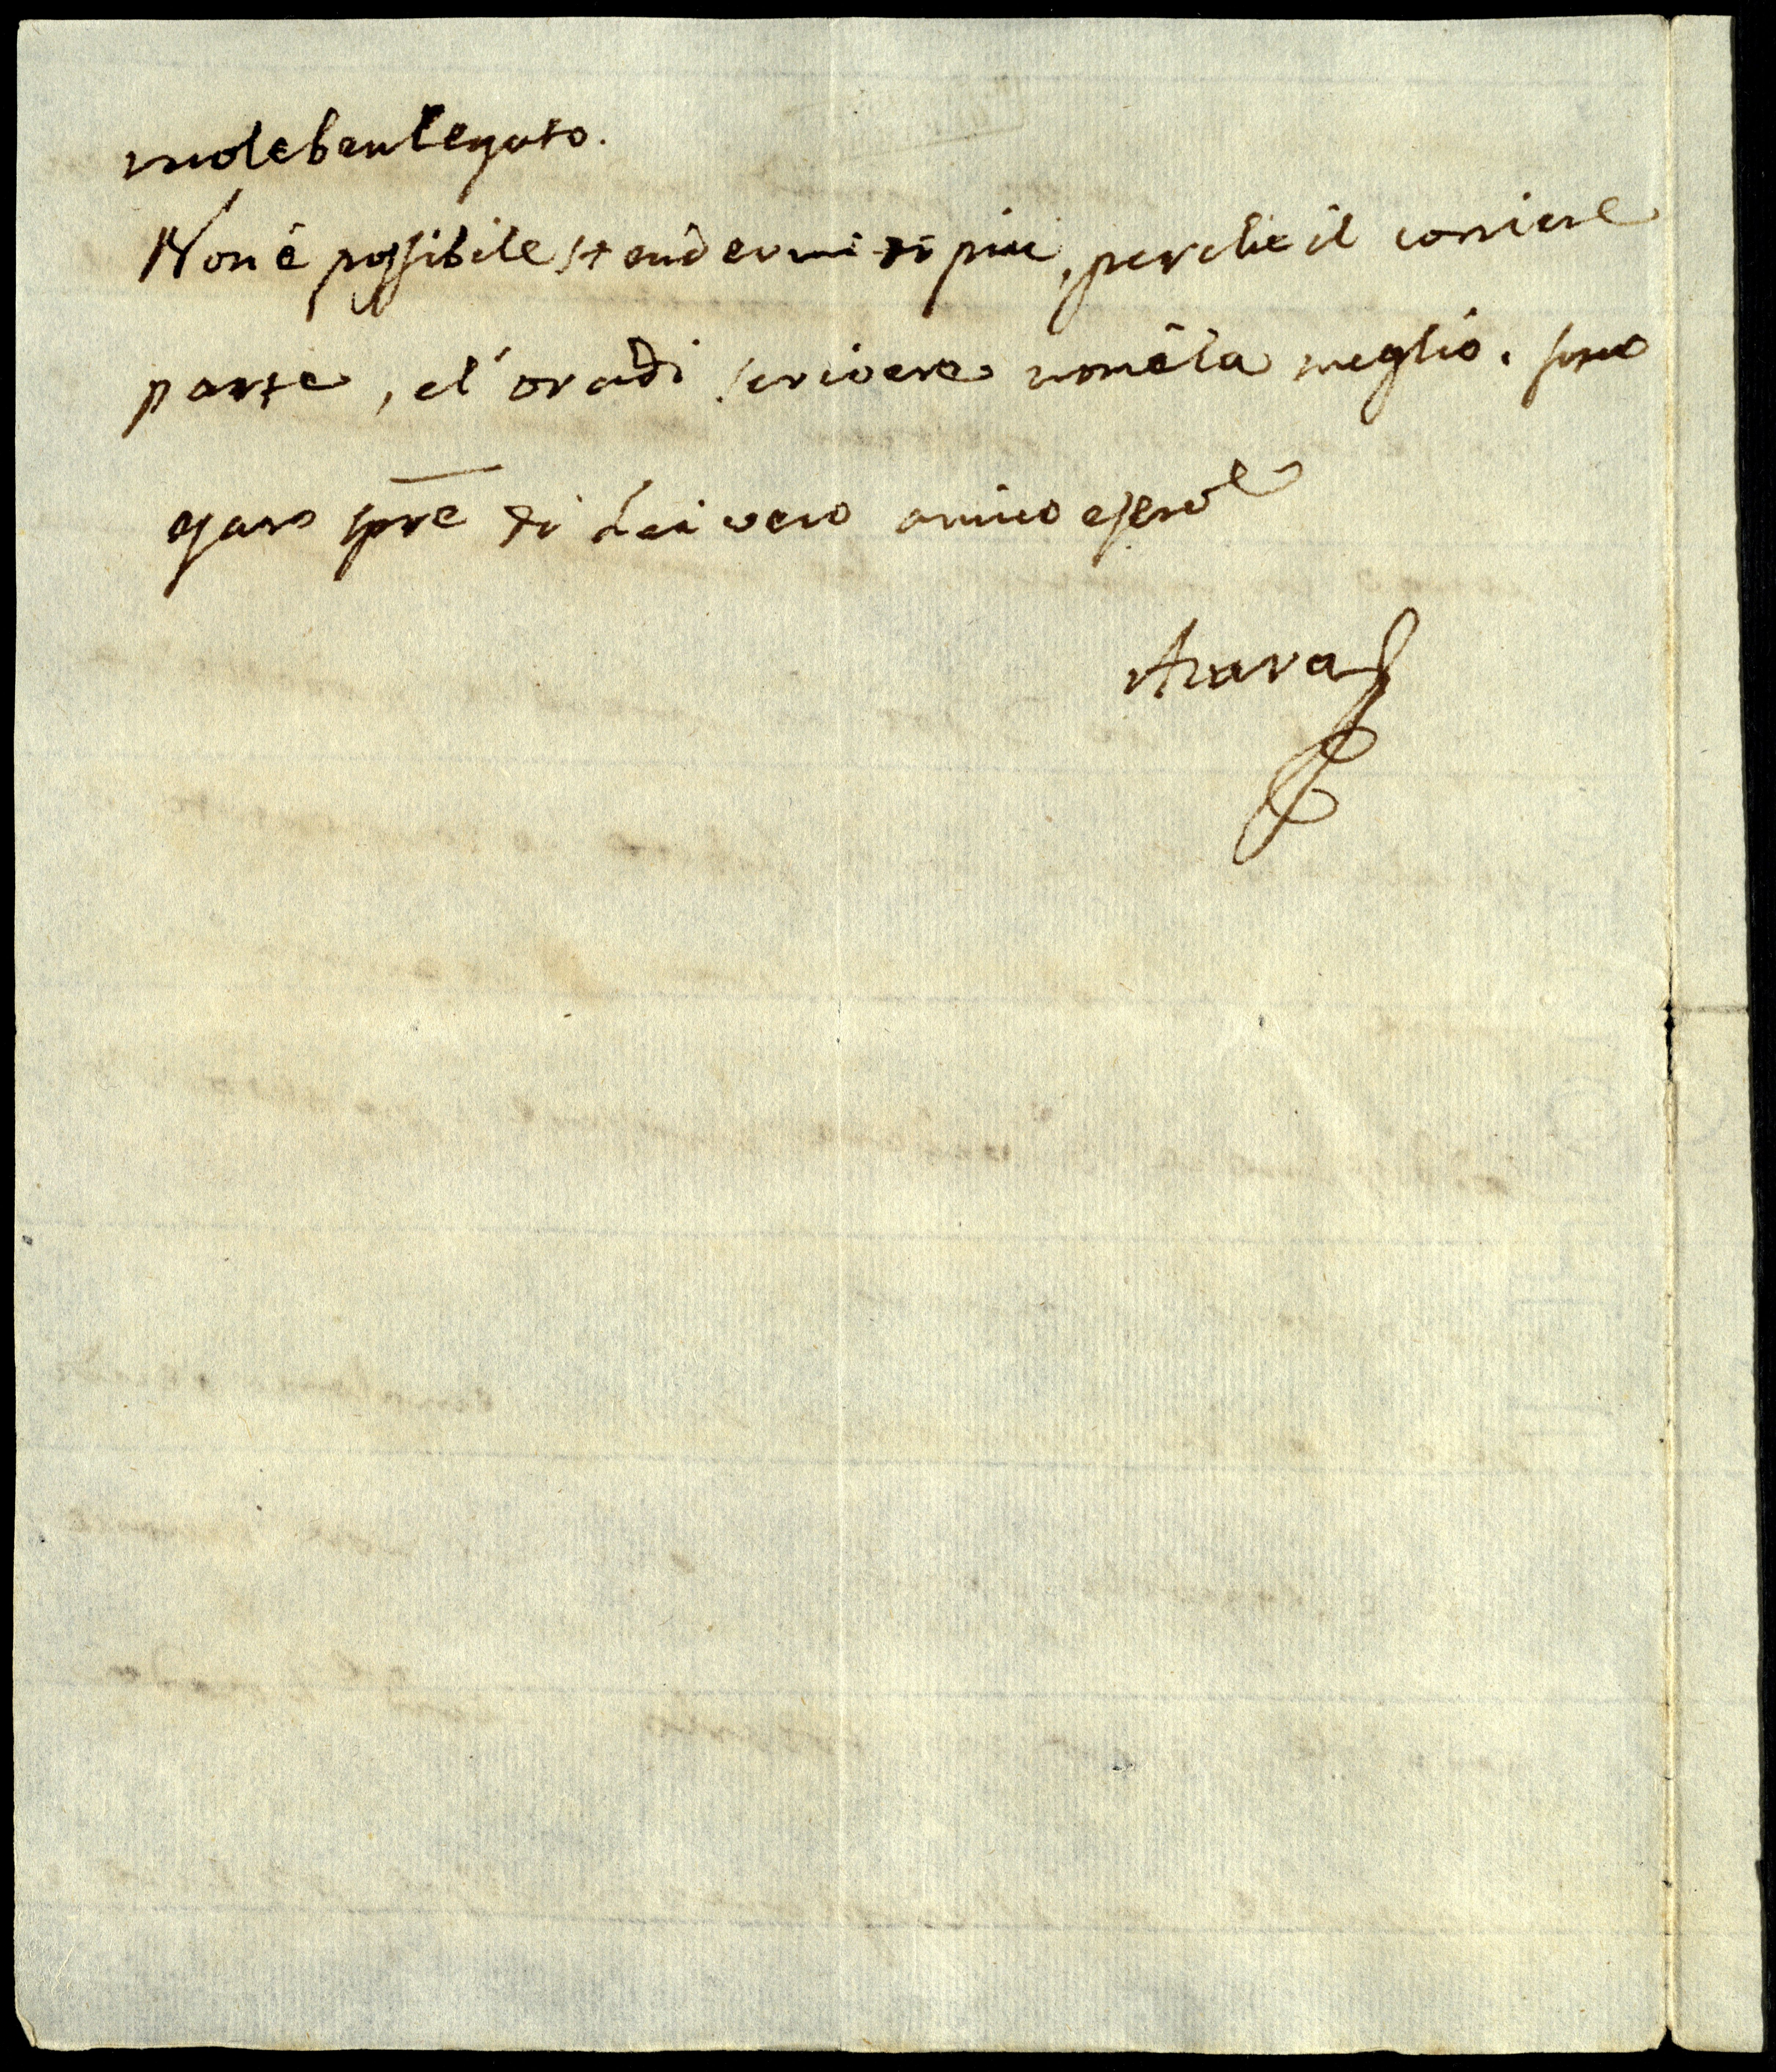 vuole ben legato.
Non é possibile stendermi di piu, perche il corriere
parte, e l'ora di scrivere non é la meglio. sono
e saro spre di Lei vero amico e serv.e
Azara